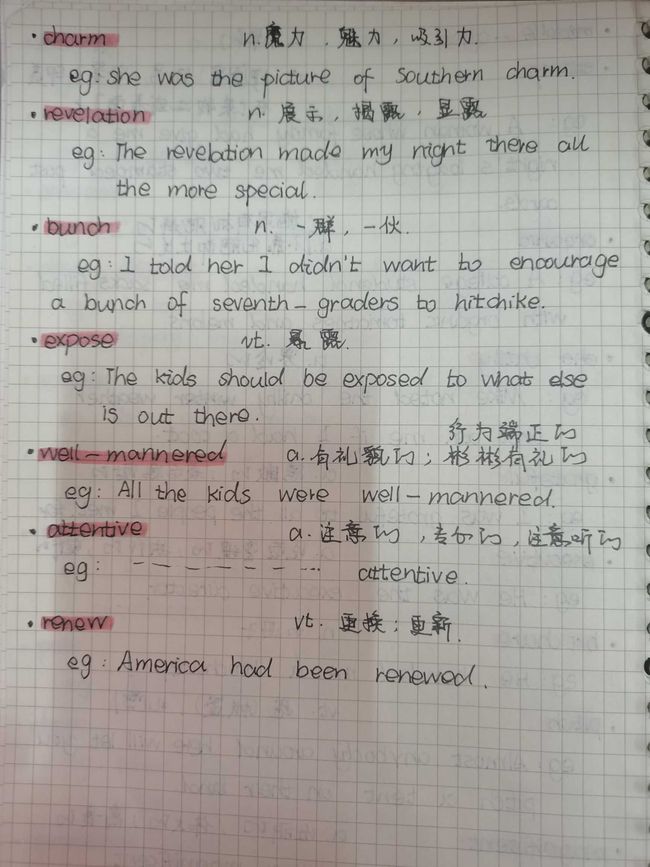 • charm n. 魔力，魅力，吸引力.
eg: she was the picture of Southern charm.
• revelation n. 展示，揭露，显露
eg: The revelation made my night there all
the more special.
• bunch n. 一群，一伙.
eg: I told her I didn't want to encourage
a bunch of seventh-graders to hitchike.
• expose vt. 暴露.
eg: The kids should be exposed to what else
is out there.
行为端正的
• well-mannered a. 有礼貌的；彬彬有礼的
eg: All the kids were well-mannered.
• attentive a. 注意的，专心的，注意听的
eg: — — — — — — ... attentive.
• renew vt. 更换；更新.
eg: America had been renewed.